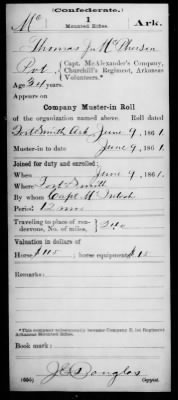 (Confederate.)
Mc 1 Ark.
Mounted Rifles.
Thomas J. McPherson
Pvt, Capt. McAlexander's Company, Churchill's Regiment, Arkansas Volunteers.*
Age 24 years.
Appears on
Company Muster-in Roll
of the organization named above. Roll dated
Fort Smith Ark June 9, 1861.
Muster-in to date June 9, 1861.
Joined for duty and enrolled:
When June 9, 1861.
Where Fort Smith
By whom Capt McIntosh
Period 12 mos
Traveling to place of rendezvous, No. of miles. 240
Valuation in dollars of
Horse $115; horse equipments $15
Remarks:
*This company subsequently became Company E, 1st Regiment Arkansas Mounted Rifles.
Book mark:
J. C. Douglas
(656) Copyist.